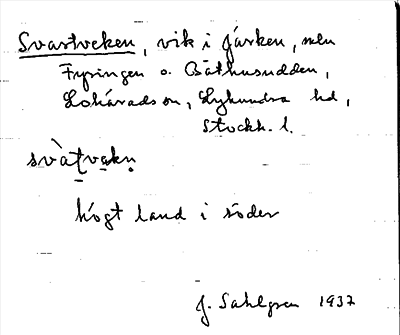 Svartveken, vik i Järken, mln
Fysingen o. Båthusudden,
Lohärads sn, Lyhundra hd,
Stockh. l.
svàt̠va̠kn̥
högt land i söder
J. Sahlgren 1937